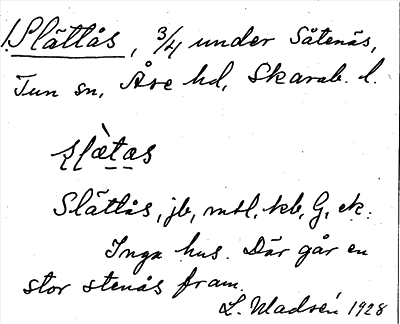 Slättås, 3/4 under Såtenäs,
Tun sn, Åse hd, Skarab. l.
slæ̀tas
Slättås, jb, mtl, kb, G, ek.
Inga hus. Där går en
stor stenås fram.
L. Madsén 1928